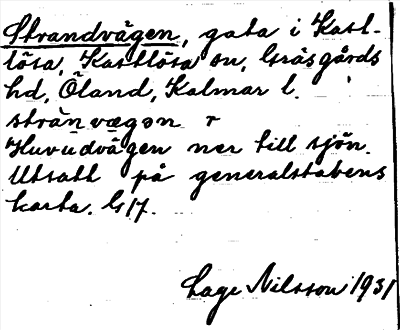 Strandvägen, gata i Kast-
lösa, Kastlösa sn, Gräsgårds
hd, Öland, Kalmar l.
strànvægən
Huvudvägen ner till sjön.
Utsatt på generalstabens
karta. G17.
Lage Nilsson 1931